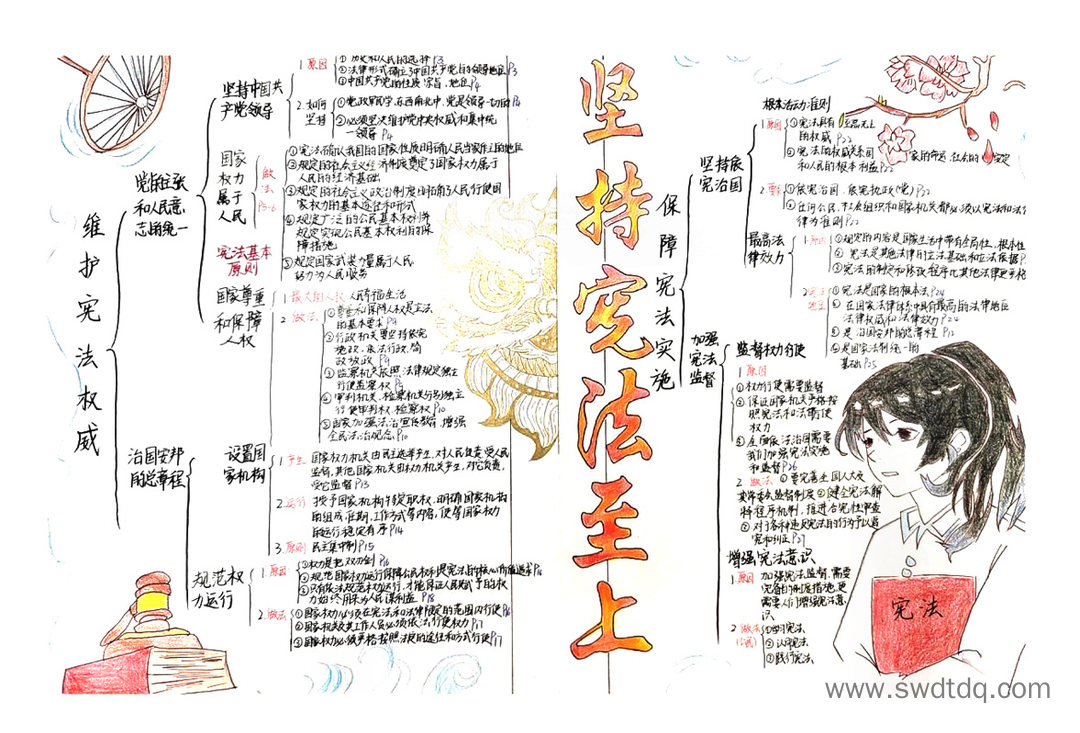 维护宪法权威
党的主张
和人民意
志的统一
坚持中国共
产党领导
1 原因
① 历史和人民的选择 P3
②法律形式确立了中国共产党的领导地位P3
③中国共产党的性质、宗旨、地位P4
2. 如何
坚持
①党政军民学,东西南北中,党是领导一切的P4
②必须坚决维护党中央权威和集中统
一领导 P4
国家
权力
属于
人民
做
法
P5-6
① 宪法确认我国的国家性质,明确人民当家作主的地位
②规定的社会主义经济制度奠定了国家权力属于
人民的经济基础
③规定的社会主义政治制度
人民行使国
家权力的基本途径和形式
④规定广泛的公民基本权利并
规定实现公民基本权利的保
障措施
⑤规定国家武装力量属于人民
努力为人民服务
宪法基本
原则
国家尊重
和保障
人权
1 最大的人权 人民幸福生活
2 做法
①尊重和保障人权是立法
的基本要求
②行政机关要坚持依宪
施政,依法行政,简
政放权
③监察机关依照法律规定独立
行使监察权
④审判机关、检察机关分别独立
行使审判权、检察权 P10
⑤国家加强法治宣传教育,增强
全民法治观念。P10
治国安邦
的总章程
设置国
家机构
1 产生
国家权力机关由民主选举产生,对人民负责,受人民
监督,其他国家机关由权力机关产生,对它负责,
受它监督P13
2.运行
授予国家机构特定职权,明确国家机构
的组成、任期、工作方式等内容,使等国家权力
的运行稳定有序P14
3.原则 民主集中制P15
规范权
力运行
1.原因
①权力是把双刃剑P16
②规范国家权力运行保障公民权利是宪法的核心价值追求P16
③只有依法规范权力运行,才能保证人民赋予的权
力始终用来为人民谋利益P18
2.做法
①国家权力必须在宪法和法律限定的范围内行使P16
②国家机关及其工作人员必须依法行使权力P17
③国家权力必须严格按照法
的途径和方式行使P17
坚持宪法至上
保障宪法实施
坚持依
宪治国
根本活动准则
1 原因
①宪法具有至高无上
的权威 P22
②宪法的权威关系国家的命运、社会的
安定
和人民的根本利益P22
2.要求
①依宪治国、依宪执政(党)P22
②任何公民、社会组织和国家机关都必须以宪法和法
律为准则 P22
最高法
律效力
1 原因
①规定的内容是国家生活中带有全局性、根本性
② 宪法是其他法律的立法基础和立法依据P
③宪法的制定和修改程序比其他法律更严格
① 宪法是国家的根本法P24
② 在国家法律体系中具有最高的法律地位
法律权威和法律效力P24
③ 是治国安邦的总章程 P12
④是国家法制统一的
基础P25
加强
宪法
监督
监督权力行使
1 原因
①权力行使需要监督
②保证国家机关严格按
照宪法和法律行使
权力
③全面依法治国需要
我们加强宪法实施
和监督P26
2 做法 ①要完善全国人大及
其常委会监督制度 ②健全宪法解
释程序机制,推进合宪性审查
③对于各种违反宪法的行为予以追
究和纠正P27
增强宪法意识
1 原因
加强宪法监督,需要
完备的制度措施,更
需要人们增强宪法意
识
2 做法
(公民)
①学习宪法
②认同宪法
③践行宪法
宪法
www.swdtdq.com